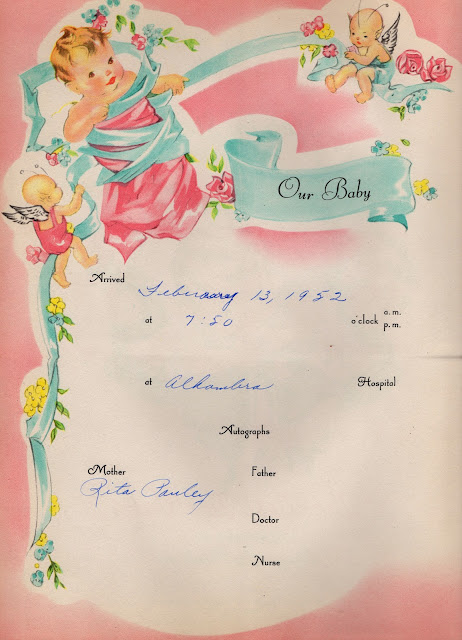 Our Baby
Arrived February 13, 1952
at 7:50 o'clock a.m. p.m.
at Alhambra Hospital
Autographs
Mother Father
Rita Pauley
Doctor
Nurse